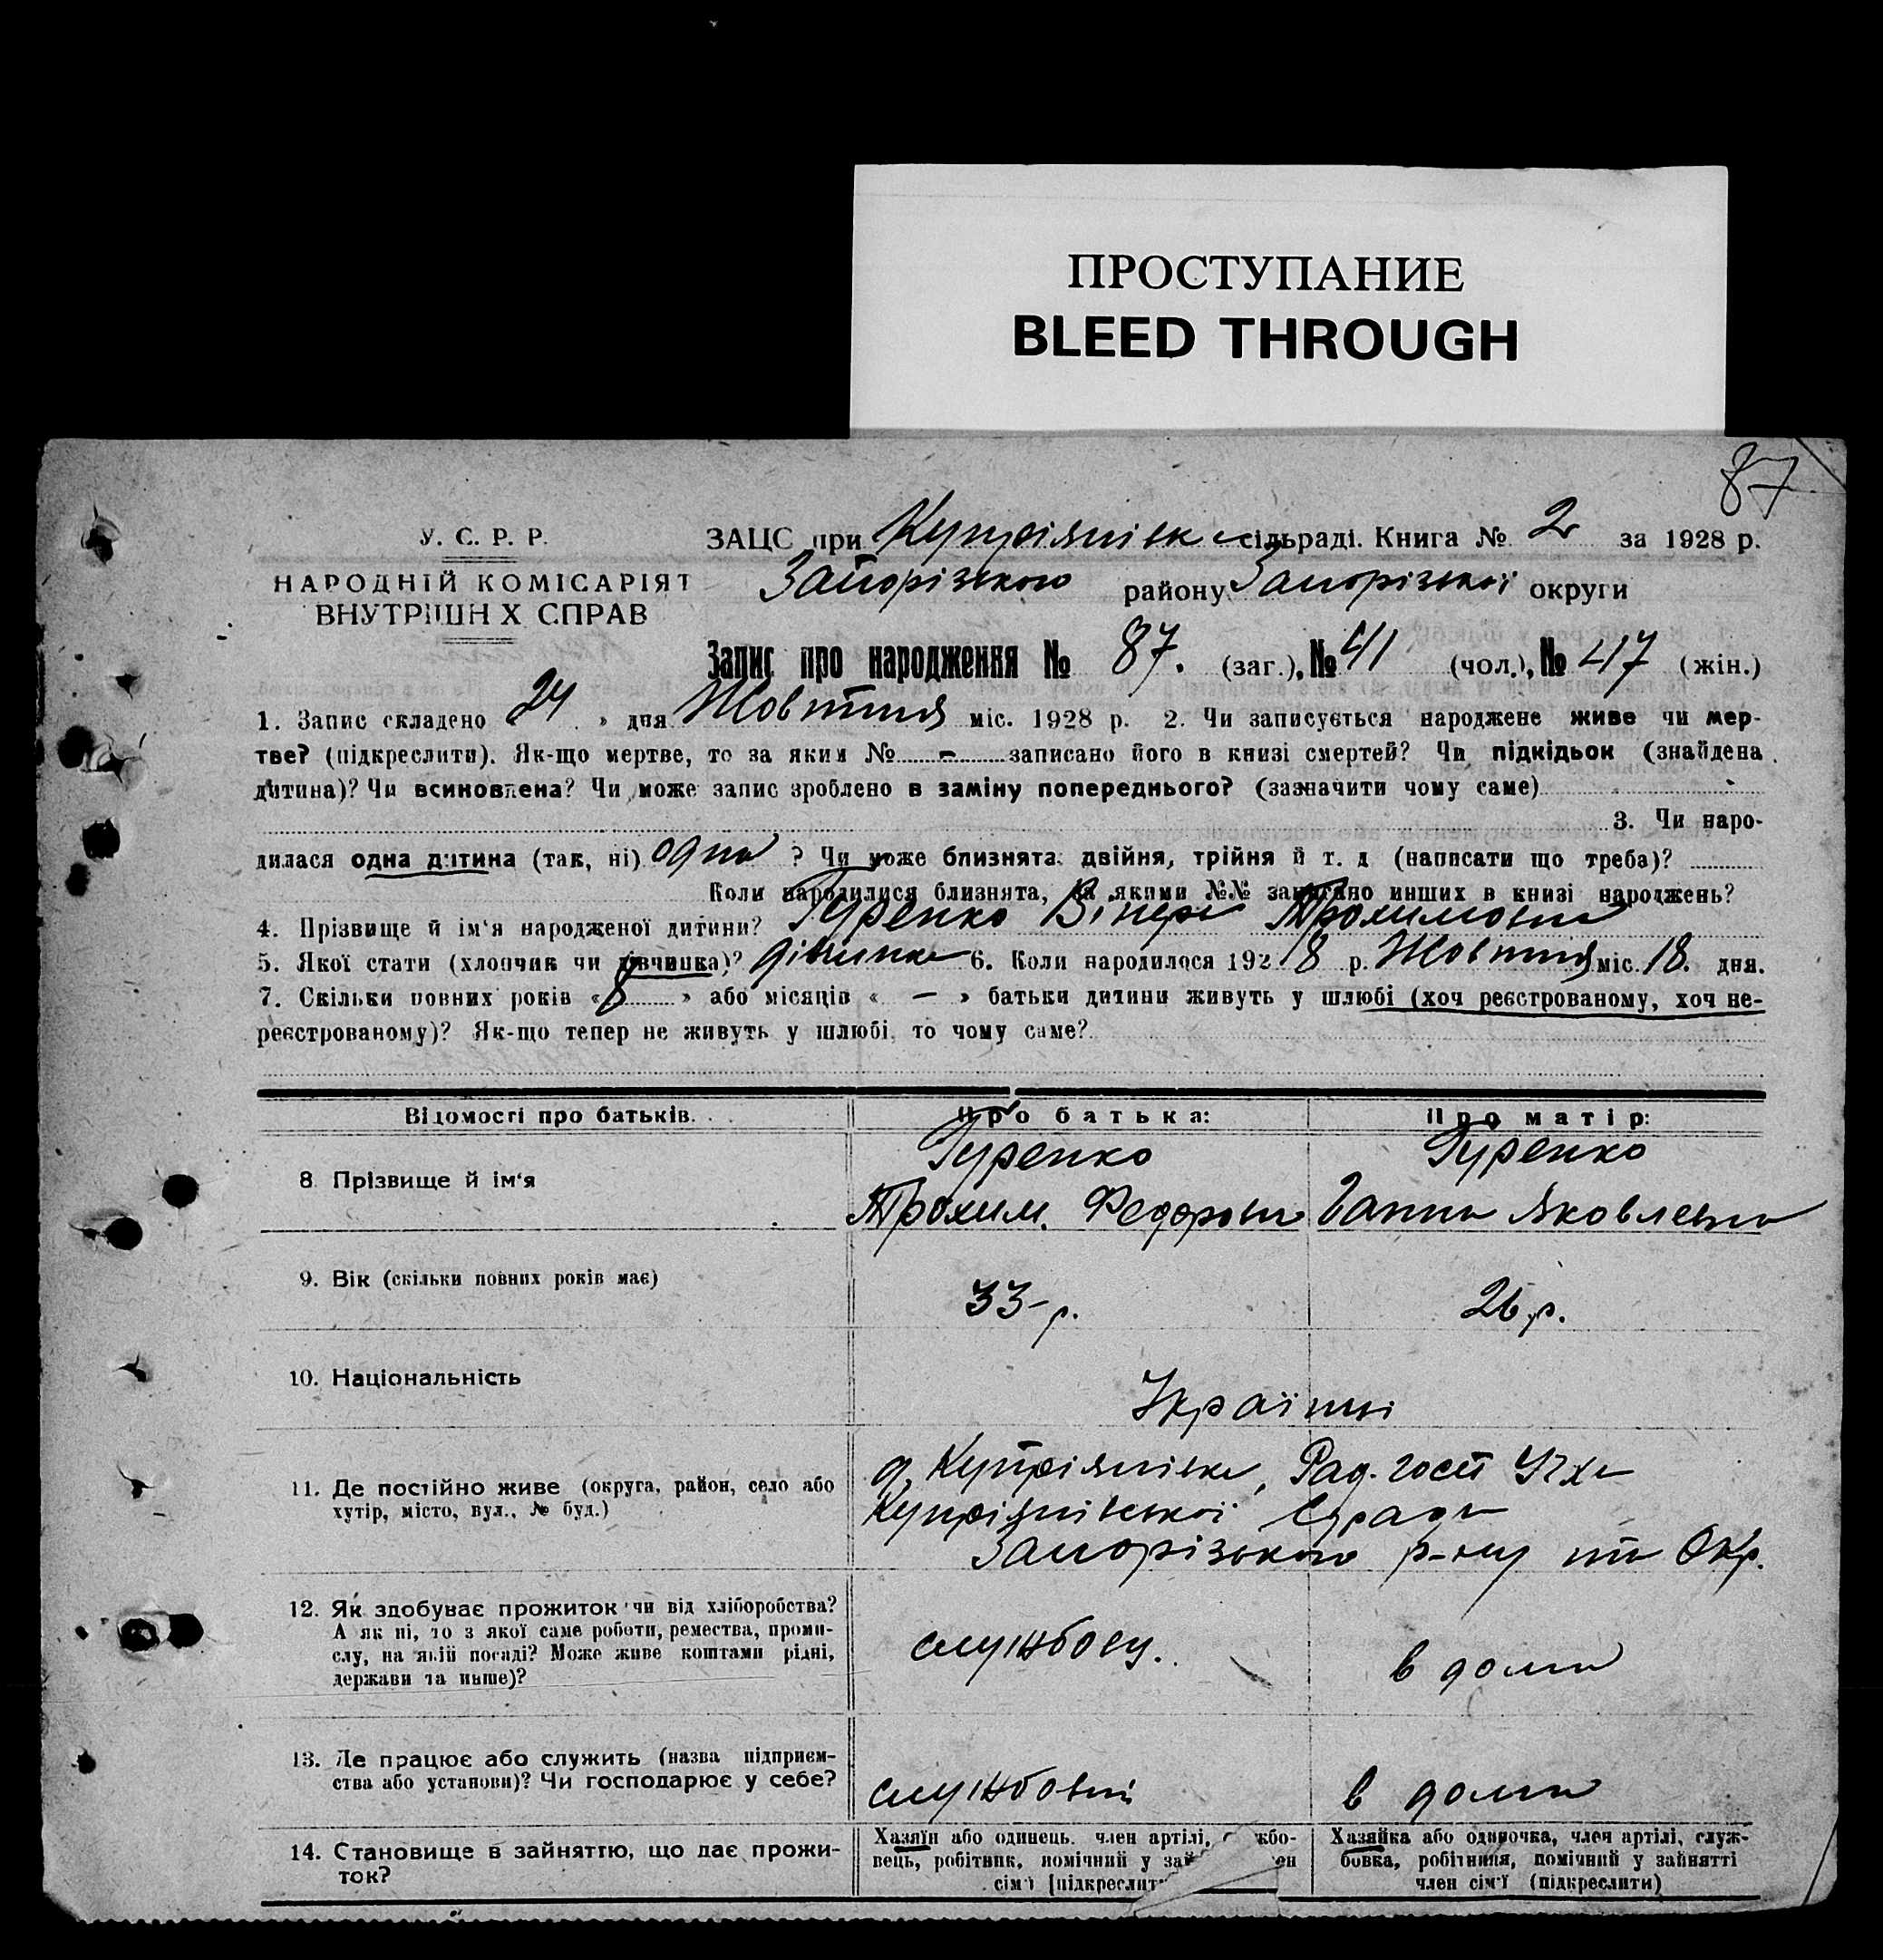 ПРОСТУПАНИЕ
BLEED THROUGH
87
У. С. Р. Р.
НАРОДНІЙ КОМІСАРІЯТ
ВНУТРІШН Х СПРАВ
ЗАЦС при Купріянівк сільраді. Книга № 2 за 1928 р.
Запорізького району Запорізької округи
Запис про народження № 87. (заг.), № 41 (чол.), № 47 (жін.)
1. Запис складено 24 » дня Жовтня міс. 1928 р. 2. Чи записується народжене живе чи мер-
тве? (підкреслити). Як-що мертве, то за яким № - записано його в книзі смертей? Чи підкідьок (знайдена
дитина)? Чи всиновлена? Чи може запис зроблено в заміну попереднього? (зазначити чому саме)
3. Чи наро-
дилася одна дитина (так, ні) одна ? Чи може близнята: двійня, трійня й т. д (написати що треба)?
Коли народилися близнята, за якими №№ записано инших в книзі народжень?
4. Прізвище й ім'я народженої дитини? Гуренко Трохимовна
5. Якої стати (хлопчик чи дівчинка)? дівчинка 6. Коли народилося 192 8 р. Жовтня міс. 18. дня.
7. Скільки повних років « » або місяців « — » батьки дитини живуть у шлюбі (хоч реєстрованому, хоч не-
реєстрованому)? Як-що тепер не живуть у шлюбі, то чому саме?
Відомості про батьків. Про батька: Про матір:
8. Прізвище й ім'я Гуренко Трохим. Федоров Гуренко Ганна Яковлевна
9. Вік (скільки повних років має) 33-р. 26 р.
10. Національність Українці
11. Де постійно живе (округа, район, село або
хутір, місто, вул., № буд.)
Купріянівка, Рад. госп
Купріянівської С/ради
Запорізького р-ну та Окр.
12. Як здобуває прожиток чи від хліборобства?
А як ні, то з якої саме роботи, ремества, проми-
слу, на якій посаді? Може живе коштами рідні,
держави та инше)?
службову. в дома
13. Де працює або служить (назва підприєм-
ства або установи)? Чи господарює у себе?
службовий в дома
14. Становище в зайняттю, що дає прожи-
ток?
Хазяїн або одинець, член артілі, жбо-
вець, робітник, помічний у зай ен
сім'ї [підкреслит
Хазяйка або одиночка, член артілі, служ-
бовка, робітниця, помічний у зайнятті
член сім'ї (підкреслити)